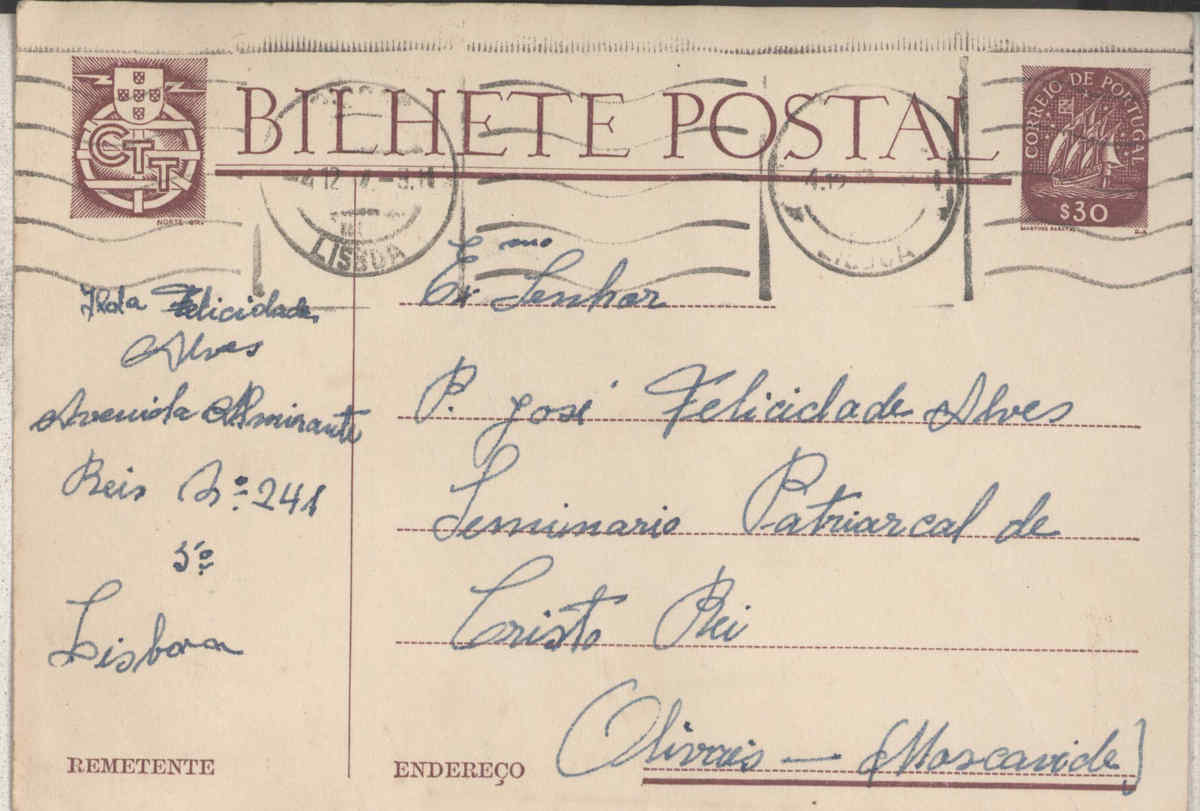 BILHETE POSTAL
CTT
NORTE
CORREIO DE PORTUGAL
$30
LISBOA
LISBOA
Felicidade
Alves
Avenida Almirante
Reis Nº 241
5º
Lisboa
REMETENTE
Exmo Senhor
P. José Felicidade Alves
Seminario Patriarcal de
Cristo Rei
Olivais — (Moscavide)
ENDEREÇO